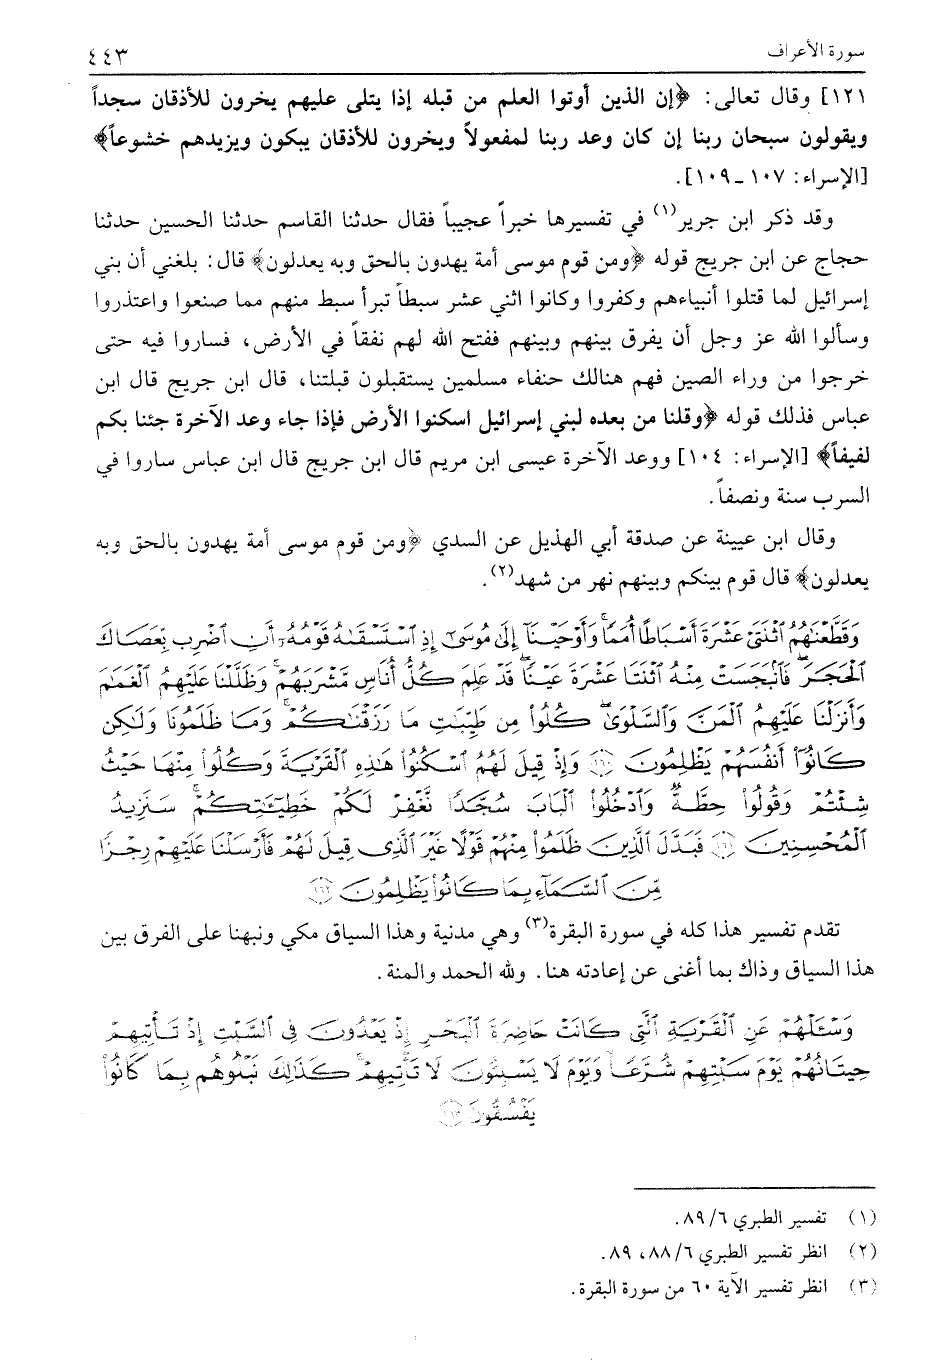 سورة الأعراف ٤٤٣
١٢١] وقال تعالى: ﴿إن الذين أوتوا العلم من قبله إذا يتلى عليهم يخرون للأذقان سجداً
ويقولون سبحان ربنا إن كان وعد ربنا لمفعولاً ويخرون للأذقان يبكون ويزيدهم خشوعاً﴾
[الإسراء: ١٠٧ ـ ١٠٩].
وقد ذكر ابن جرير(١) في تفسيرها خبراً عجيباً فقال حدثنا القاسم حدثنا الحسين حدثنا
حجاج عن ابن جريج قوله ﴿ومن قوم موسى أمة يهدون بالحق وبه يعدلون﴾ قال: بلغني أن بني
إسرائيل لما قتلوا أنبياءهم وكفروا وكانوا اثني عشر سبطاً تبرأ سبط منهم مما صنعوا واعتذروا
وسألوا الله عز وجل أن يفرق بينهم وبينهم ففتح الله لهم نفقاً في الأرض، فساروا فيه حتى
خرجوا من وراء الصين فهم هنالك حنفاء مسلمين يستقبلون قبلتنا، قال ابن جريج قال ابن
عباس فذلك قوله ﴿وقلنا من بعده لبني إسرائيل اسكنوا الأرض فإذا جاء وعد الآخرة جئنا بكم
لفيفاً﴾ [الإسراء: ١٠٤] ووعد الآخرة عيسى ابن مريم قال ابن جريج قال ابن عباس ساروا في
السرب سنة ونصفاً.
وقال ابن عيينة عن صدقة أبي الهذيل عن السدي ﴿ومن قوم موسى أمة يهدون بالحق وبه
يعدلون﴾ قال قوم بينكم وبينهم نهر من شهد(٢).
وَقَطَّعْنَٰهُمُ ٱثْنَتَىْ عَشْرَةَ أَسْبَاطًا أُمَمًا ۚ وَأَوْحَيْنَآ إِلَىٰ مُوسَىٰٓ إِذِ ٱسْتَسْقَىٰهُ قَوْمُهُۥٓ أَنِ ٱضْرِب بِّعَصَاكَ
ٱلْحَجَرَ ۖ فَٱنۢبَجَسَتْ مِنْهُ ٱثْنَتَا عَشْرَةَ عَيْنًا ۖ قَدْ عَلِمَ كُلُّ أُنَاسٍ مَّشْرَبَهُمْ ۚ وَظَلَّلْنَا عَلَيْهِمُ ٱلْغَمَٰمَ
وَأَنزَلْنَا عَلَيْهِمُ ٱلْمَنَّ وَٱلسَّلْوَىٰ ۖ كُلُوا۟ مِن طَيِّبَٰتِ مَا رَزَقْنَٰكُمْ ۚ وَمَا ظَلَمُونَا وَلَٰكِن
كَانُوٓا۟ أَنفُسَهُمْ يَظْلِمُونَ ﴿١٦٠﴾ وَإِذْ قِيلَ لَهُمُ ٱسْكُنُوا۟ هَٰذِهِ ٱلْقَرْيَةَ وَكُلُوا۟ مِنْهَا حَيْثُ
شِئْتُمْ وَقُولُوا۟ حِطَّةٌ وَٱدْخُلُوا۟ ٱلْبَابَ سُجَّدًا نَّغْفِرْ لَكُمْ خَطِيٓـَٰٔتِكُمْ ۚ سَنَزِيدُ
ٱلْمُحْسِنِينَ ﴿١٦١﴾ فَبَدَّلَ ٱلَّذِينَ ظَلَمُوا۟ مِنْهُمْ قَوْلًا غَيْرَ ٱلَّذِى قِيلَ لَهُمْ فَأَرْسَلْنَا عَلَيْهِمْ رِجْزًا
مِّنَ ٱلسَّمَآءِ بِمَا كَانُوا۟ يَظْلِمُونَ ﴿١٦٢﴾
تقدم تفسير هذا كله في سورة البقرة(٣) وهي مدنية وهذا السياق مكي ونبهنا على الفرق بين
هذا السياق وذاك بما أغنى عن إعادته هنا. ولله الحمد والمنة.
وَسْـَٔلْهُمْ عَنِ ٱلْقَرْيَةِ ٱلَّتِى كَانَتْ حَاضِرَةَ ٱلْبَحْرِ إِذْ يَعْدُونَ فِى ٱلسَّبْتِ إِذْ تَأْتِيهِمْ
حِيتَانُهُمْ يَوْمَ سَبْتِهِمْ شُرَّعًا وَيَوْمَ لَا يَسْبِتُونَ ۙ لَا تَأْتِيهِمْ ۚ كَذَٰلِكَ نَبْلُوهُم بِمَا كَانُوا۟
يَفْسُقُونَ ﴿١٦٣﴾
(١) تفسير الطبري ٦/ ٨٩.
(٢) انظر تفسير الطبري ٦/ ٨٨، ٨٩.
(٣) انظر تفسير الآية ٦٠ من سورة البقرة.